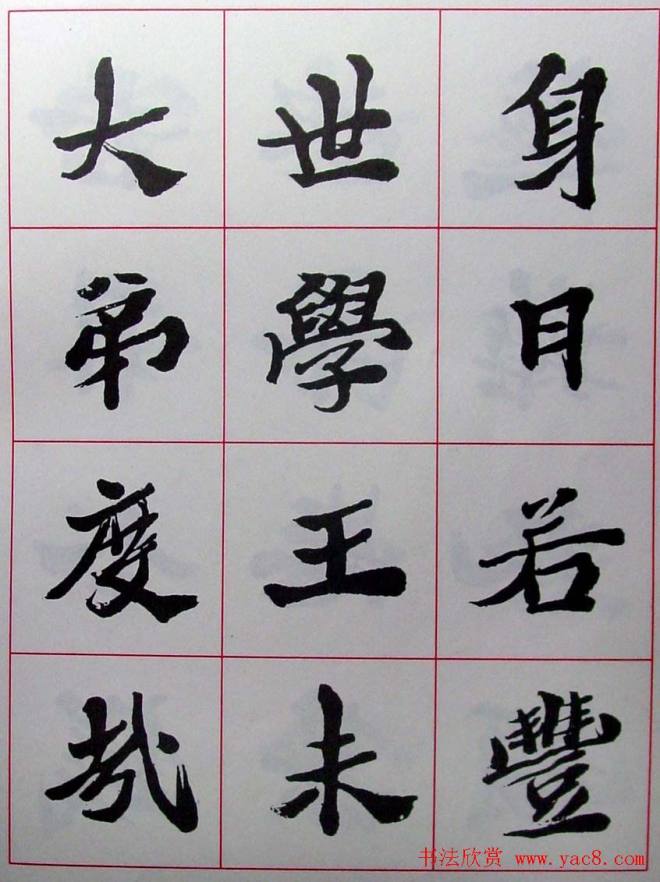 身日若豐
世學王未
大弟度
书法欣赏 www.yac8.com